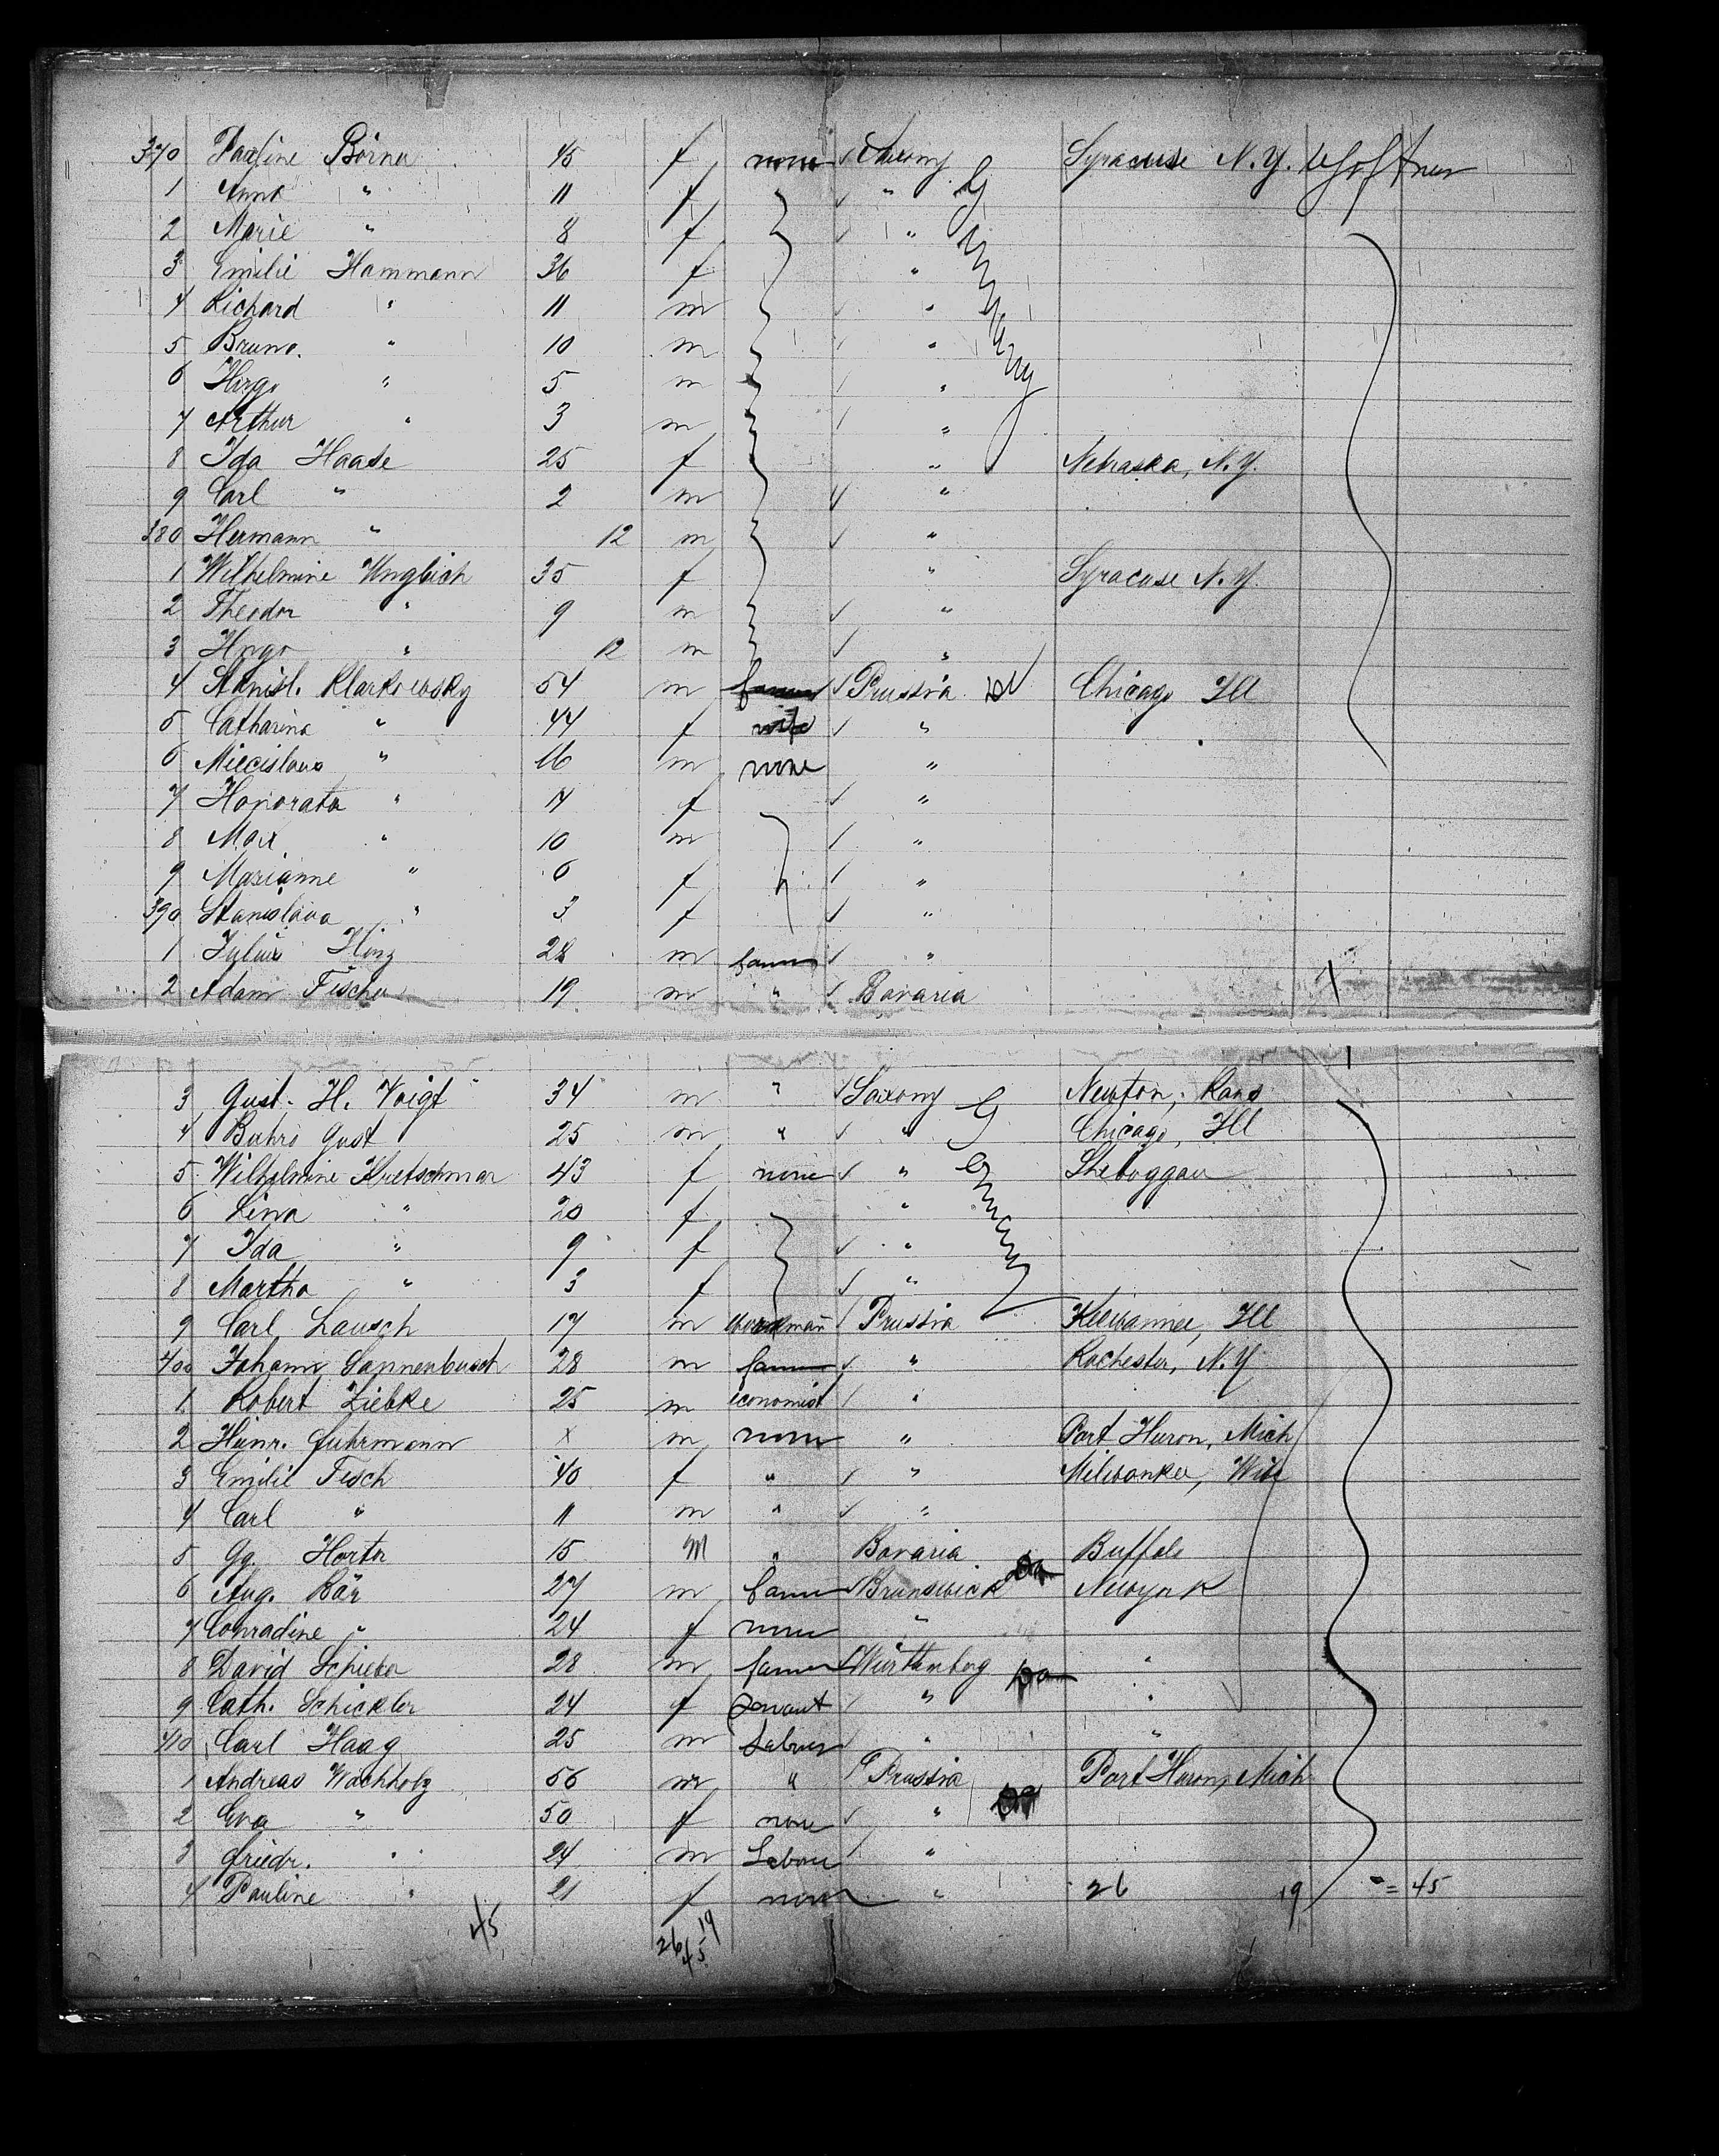 370 Pauline Börner 45 f none Saxony Syracuse N.Y.
1 Anna " 11 f "
2 Marie " 8 f " Germany
3 Emilie Hammann 36 f "
4 Richard " 11 m "
5 Bruno. " 10 m "
6 Hugo " 5 m "
7 Arthur " 3 m "
8 Ida Haase 25 f " Nebraska, N.Y.
9 Carl " 2 m "
380 Hermann " 12 m "
1 Wilhelmine Ungleich 35 f " Syracuse N.Y.
2 Theodor " 9 m "
3 Hugo " 12 m "
4 Stanisl. Klarkowsky 54 m farmer Prussia Chicago Ill
5 Catharina " 44 f wife "
6 Miecislaus " 16 m none "
7 Honorata " 14 f "
8 Max " 10 m "
9 Marianne " 6 f "
390 Stanislava " 3 f "
1 Julius Hinz 28 m farmer "
2 Adam Fischer 19 m " Bavaria
3 Gust. H. Voigt 34 m " Saxony Newton, Kans
4 Buhrs Gust 25 m " " Chicago, Ill
5 Wilhelmine Kretschmar 43 f none " Germany Sheboggan
6 Lina " 20 f "
7 Ida " 9 f "
8 Martha " 3 f "
9 Carl Lausch 17 m workman Prussia Kewannee, Ill
400 Johann Sannenbusch 28 m farmer " Rochester, N.Y
1 Robert Liebke 25 m economist "
2 Heinr. Fuhrmann x m none " Port Huron, Mich
3 Emilie Fisch 40 f " " Milwaukee, Wisc
4 Carl " 11 m " "
5 Gg. Horter 15 M " Bavaria Buffalo
6 Aug. Bär 27 m farmer Brunswick Newyork
7 Conradine " 24 f none "
8 David Schieber 28 m farmer Würtemberg "
9 Cath. Schickler 24 f Servant " "
410 Carl Haag 25 m Labourer " "
1 Andreas Wachholz 56 m " Prussia Port Huron, Mich
2 Eva " 50 f none "
3 Friedr. " 24 m Labourer "
4 Pauline " 21 f none " 26 19 = 45
45 26 19
45